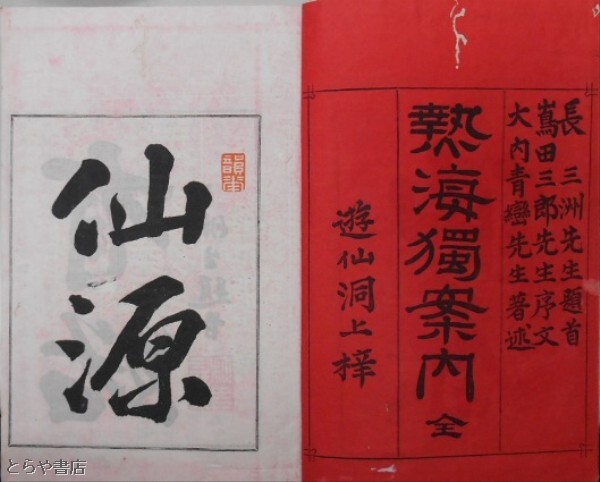 長 三洲先生題首
嶌田三郎先生序文
大内青巒先生著述
熱海獨案内 全
遊仙洞上梓
仙源
とらや書店